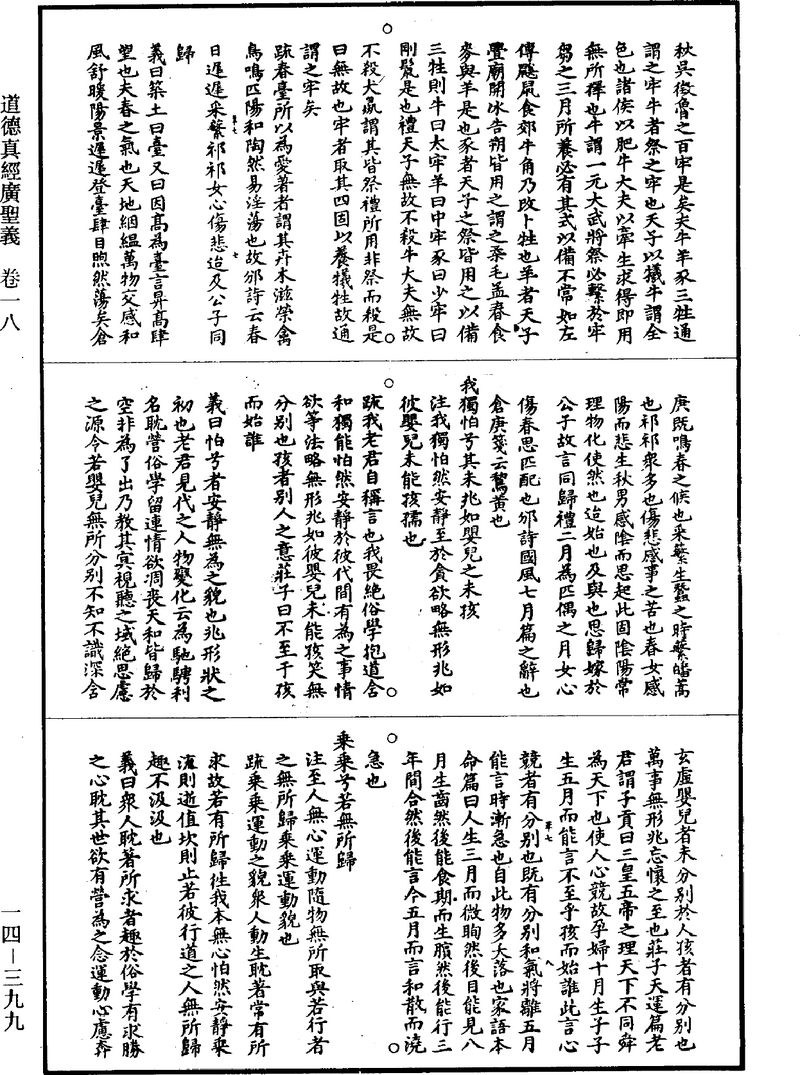 道德真經廣聖義　卷一八
一四—三九九
秋吳徵魯之百牢是矣夫牛羊豕三牲通
謂之牢牛者祭之牢也天子以犧牛謂全
色也諸侯以肥牛大夫以牽生求得即用
無所擇也牛謂一元大武將祭必繫於牢
芻之三月所養必有其式以備不常如左
傳鼷鼠食郊牛角乃改卜牲也羊者天子
舋廟開冰告朔皆用之謂之柔毛孟春食
麥與羊是也豕者天子之祭皆用之以備
三牲則牛曰太牢羊曰中牢豕曰少牢曰
剛鬣是也禮天子無故不殺牛大夫無故
不殺犬彘謂其皆祭禮所用非祭而殺是
曰無故也牢者取其四固以養犧牲故通
謂之牢矣
疏春臺所以為愛著者謂其卉木滋榮禽
鳥鳴匹陽和陶然易淫蕩也故邠詩云春
日遲遲采蘩祁祁女心傷悲迨及公子同
歸
義曰築土曰臺又曰因高為臺言昇高肆
望也夫春之氣也天地絪縕萬物交感和
風舒暖陽景遲遲登臺肆目煦然蕩矣倉
庚既鳴春之候也采蘩生蠶之時蘩皤蒿
也祁祁衆多也傷悲感事之苦也春女感
陽而悲生秋男感陰而思起此固陰陽常
理物化使然也迨始也及與也思歸嫁於
公子故言同歸禮二月為匹偶之月女心
傷春思匹配也邠詩國風七月篇之辭也
倉庚箋云鶩黃也
我獨怕兮其未兆如嬰兒之未孩
注我獨怕然安靜至於貪欲略無形兆如
彼嬰兒未能孩孺也
疏我老君自稱言也我畏絕俗學抱道含
和獨能怕然安靜於彼代間有為之事情
欲等法略無形兆如彼嬰兒未能孩笑無
分別也孩者別人之意莊子曰不至于孩
而始誰
義曰怕兮者安靜無為之貌也兆形狀之
初也老君見代之人物變化云為馳騁利
名耽營俗學留連情欲凋喪天和皆歸於
空非為了出乃教其冥視聽之域絕思慮
之源令若嬰兒無所分別不知不識深含
玄虛嬰兒者未分別於人孩者有分別也
萬事無形兆忘懷之至也莊子天運篇老
君謂子貢曰三皇五帝之理天下不同舜
為天下也使人心競故孕婦十月生子子
生五月而能言不至乎孩而始誰此言心
競者有分別也既有分別和氣將離五月
能言時漸急也自此物多夭落也家語本
命篇曰人生三月而微眴然後目能見八
月生齒然後能食期而生臏然後能行三
年間合然後能言今五月而言和散而澆
急也
乘乘兮若無所歸
注至人無心運動隨物無所取與若行者
之無所歸乘乘運動貌也
疏乘乘運動之貌衆人動生耽著常有所
求故若有所歸往我本無心怕然安靜乘
流則逝值坎則止若彼行道之人無所歸
趣不汲汲也
義曰衆人耽著所求者趣於俗學有求勝
之心耽其世欲有營為之念運動心慮奔